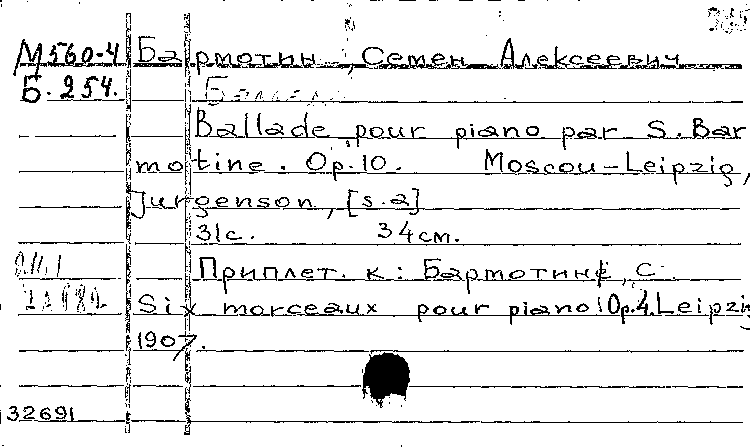 М560-4 Бармотин, Семен Алексеевич
Б.254.
Ballade pour piano par S. Bar
motine. Op.10. Moscou-Leipzig,
Jurgenson, [s.a]
31с. 34см.
Приплет. к: Бармотин, С.
Six morceaux pour piano! Op.4. Leipzig
1907.
32691